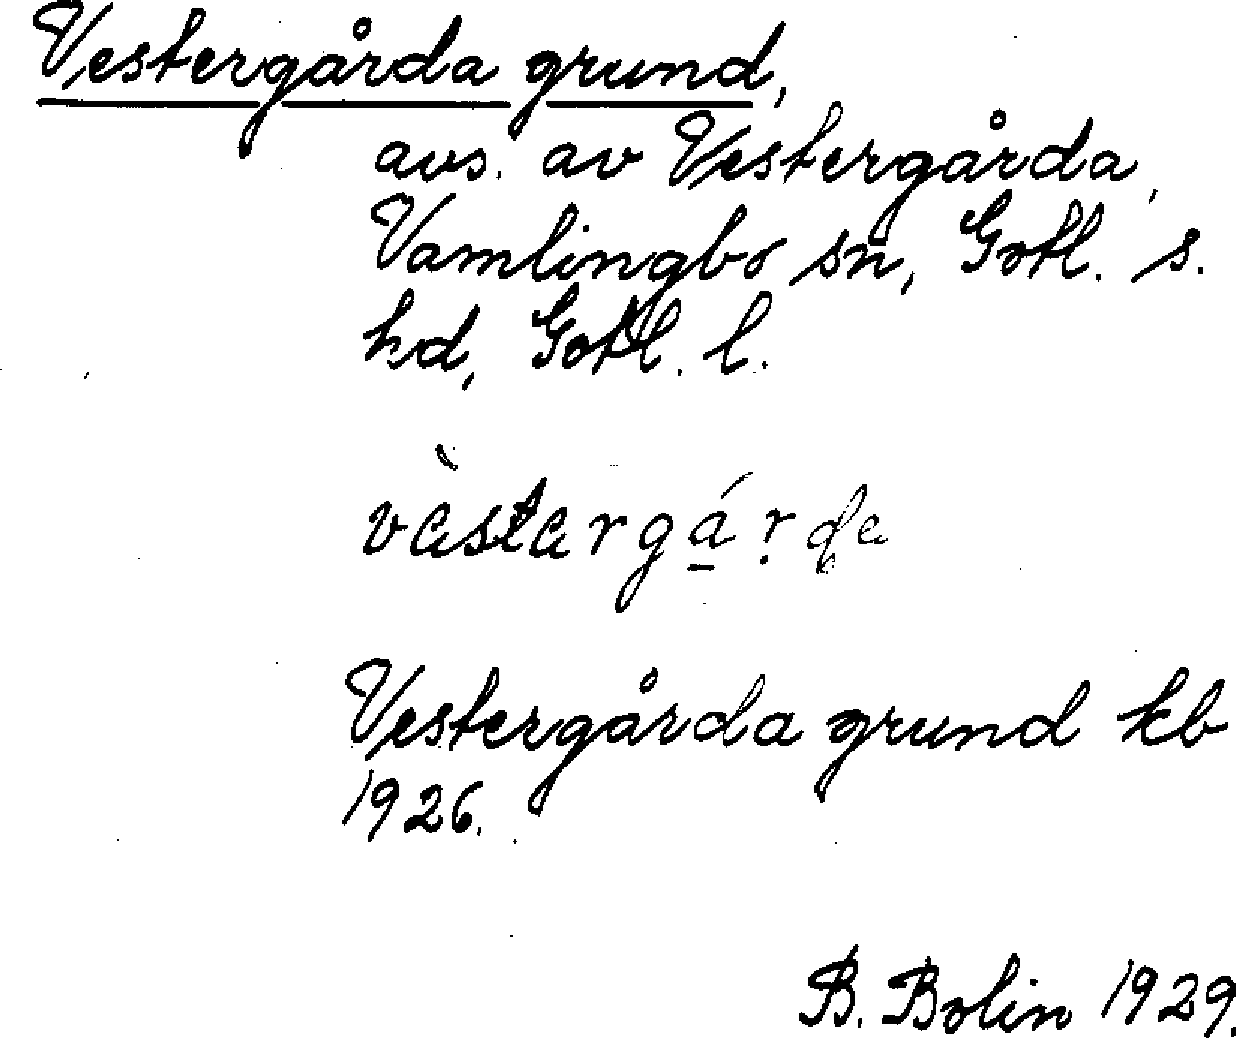 Vestergårda grund,
avs. av Vestergårda,
Vamlingbo sn, Gotl. s.
hd, Gotl. l.
Vestergårda grund kb
1926.
B. Bolin 1929.